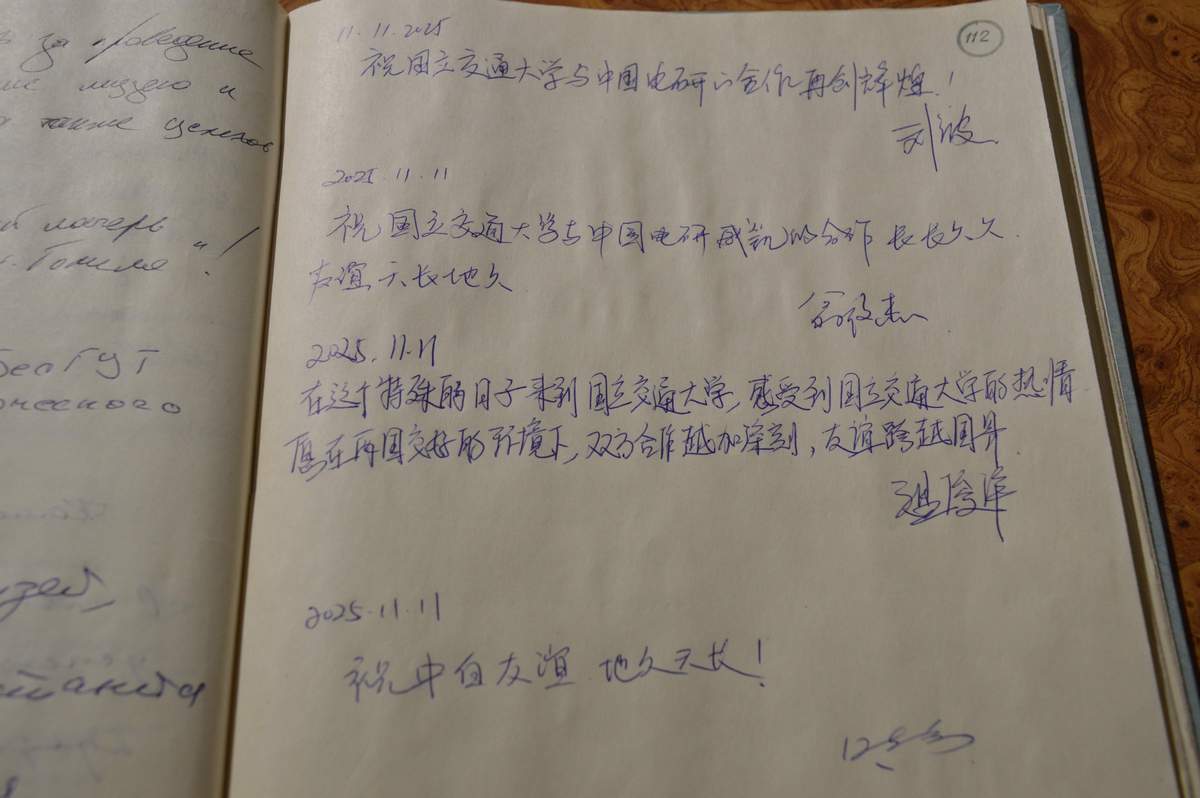 за проведение
музею и
а также успехов
лагерь
г. Гомеля"!
БелГУТ
ческого
узей,
112
11.11.2025
祝国立交通大学与中国电研的合作再创辉煌!
刘波
2025.11.11
祝国立交通大学与中国电研威凯的合作长长久久
友谊天长地久
2025.11.11
在这个特殊的日子来到国立交通大学,感受到国立交通大学的热情
愿在两国交好的环境下,双方合作越加深刻,友谊跨越国界
2025.11.11
祝中白友谊 地久天长!